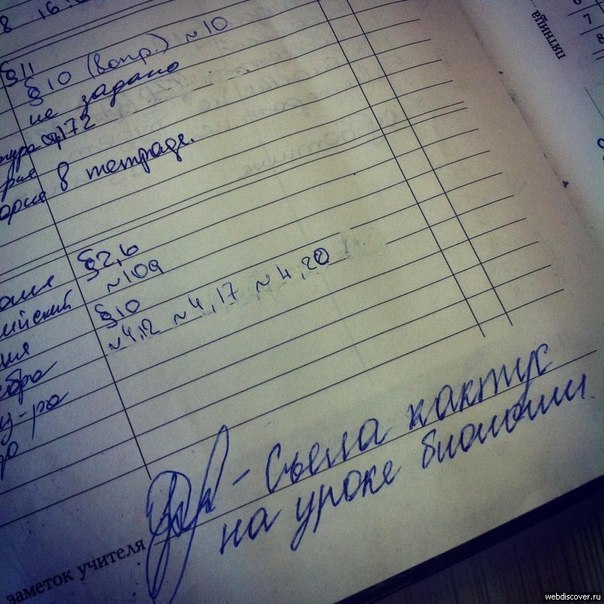 8 16.
§11
§10 (вопр.) №10
не задано
тура стр172
рия
ория в тетраде.
§2,6
№109
§10
№4,12 №4,17 №4,20
у-ра
- Съела кактус
на уроке биологии.
заметок учителя
пятница
6
7
8
webdiscover.ru